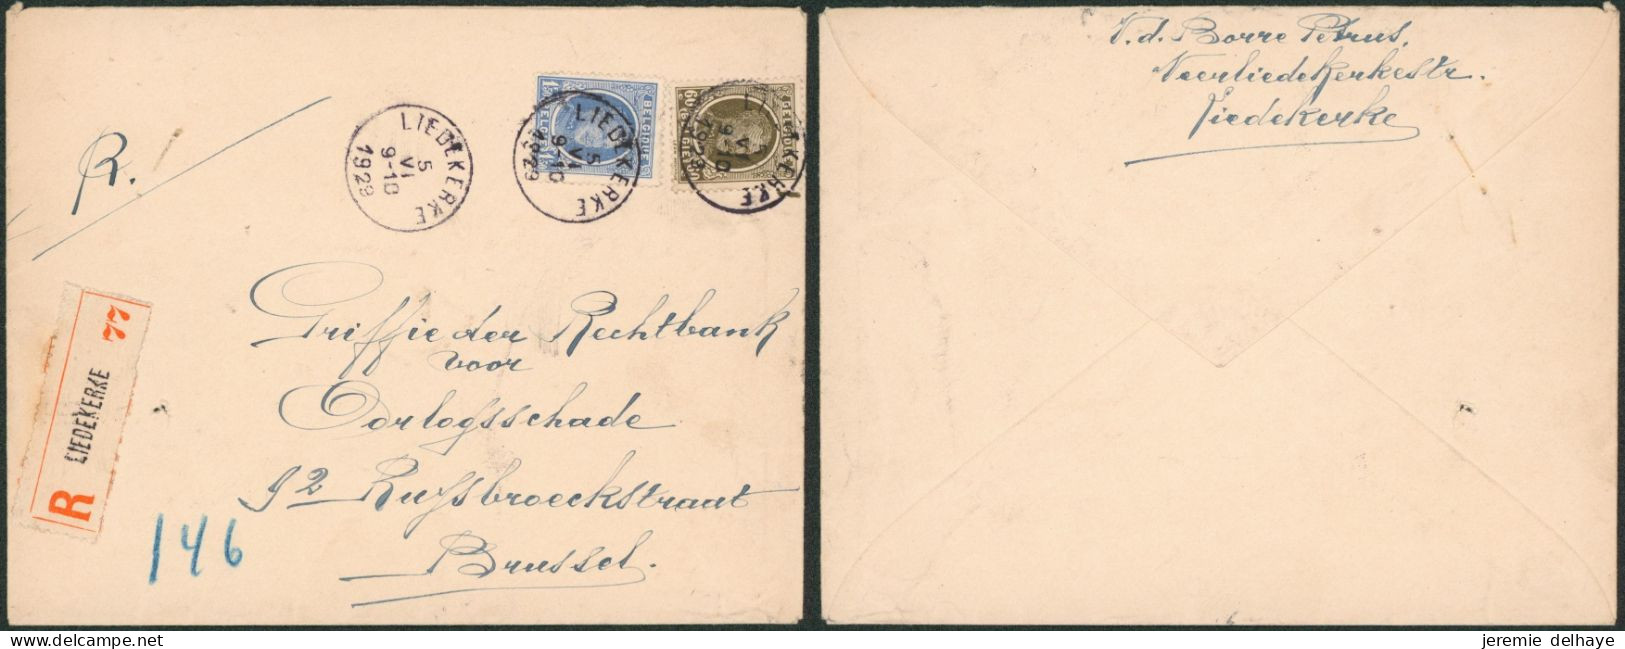 R.
LIEDEKERKE
5
VI
9-10
1929
LIEDEKERKE
5
VI
9-10
1929
BELGIQUE
60
R
LIEDEKERKE
77
146
Griffie der Rechtbank
voor
Oorlogsschade
92 Ruysbroeckstraat
Brussel.
V.d. Borre Petrus.
Neerliedekerkestr.
Liedekerke
jeremie delhaye